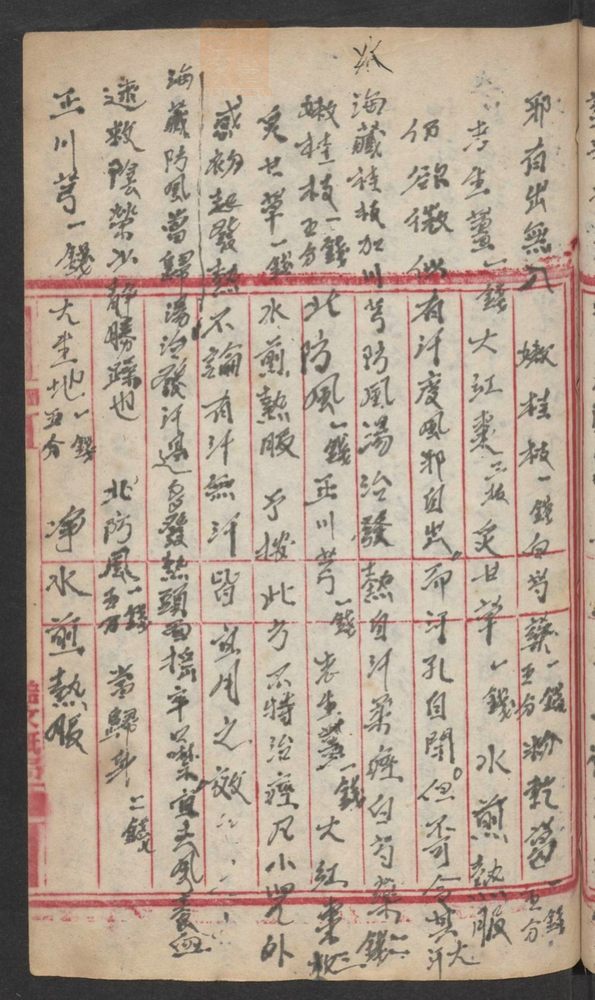 邪有出無入　嫩桂枝一錢白芍藥一錢五分粉乾葛一錢五分
老生薑一錢大紅棗三枚炙甘草一錢水煎熱服
仍欲微似有汗度風邪自出而汗孔自閉。但不可令其大汗
海藏桂枝加川芎防風湯治發熱自汗柔痙白芍藥一錢
嫩桂枝一錢五分北防風一錢正川芎一錢老生薑一錢大紅棗三枚
炙甘草一錢水煎熱服　予按此方不特治痙凡小兒外
感初起發熱不論有汗無汗皆宜用之效
海藏防風當歸湯治發汗過多發熱頭面搖卒噤宜去風養血
速救陰榮以靜勝躁也　北防風一錢五分　當歸身二錢
正川芎一錢　大生地一錢五分　淨水煎熱服